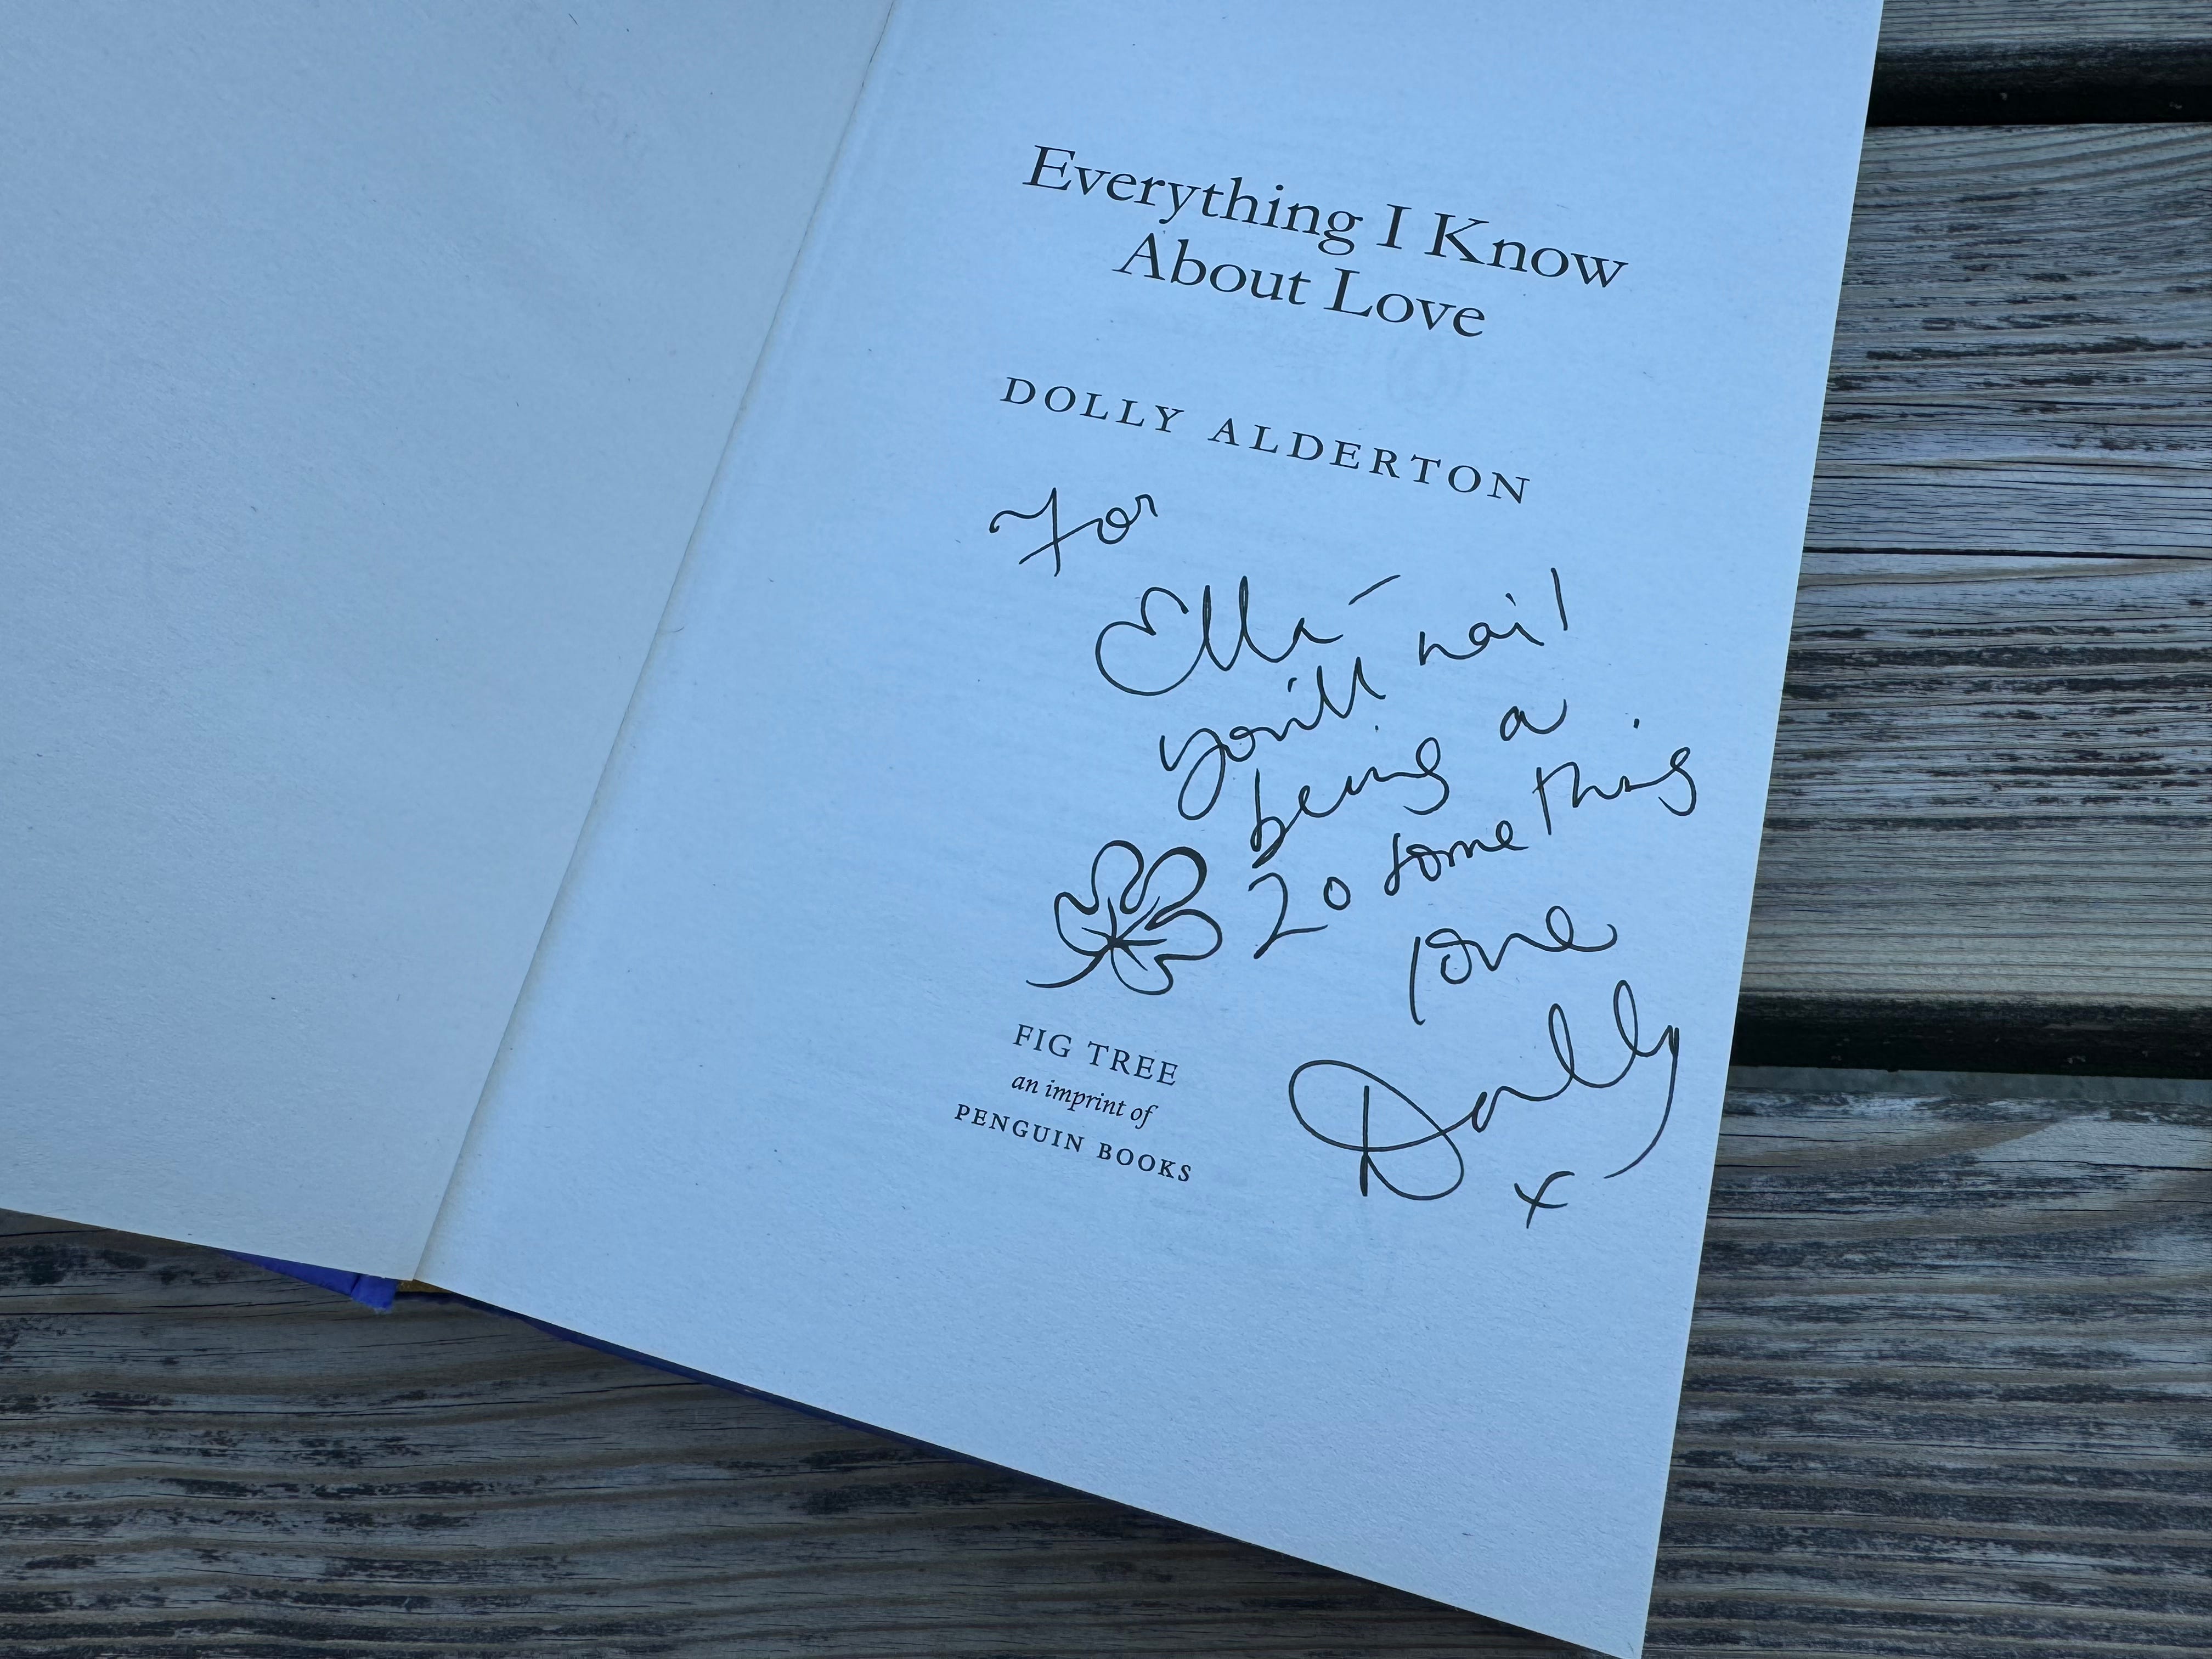 Everything I Know
About Love
DOLLY ALDERTON
For
Ella –
you'll nail
being a
20 something
love
Dolly
x
FIG TREE
an imprint of
PENGUIN BOOKS